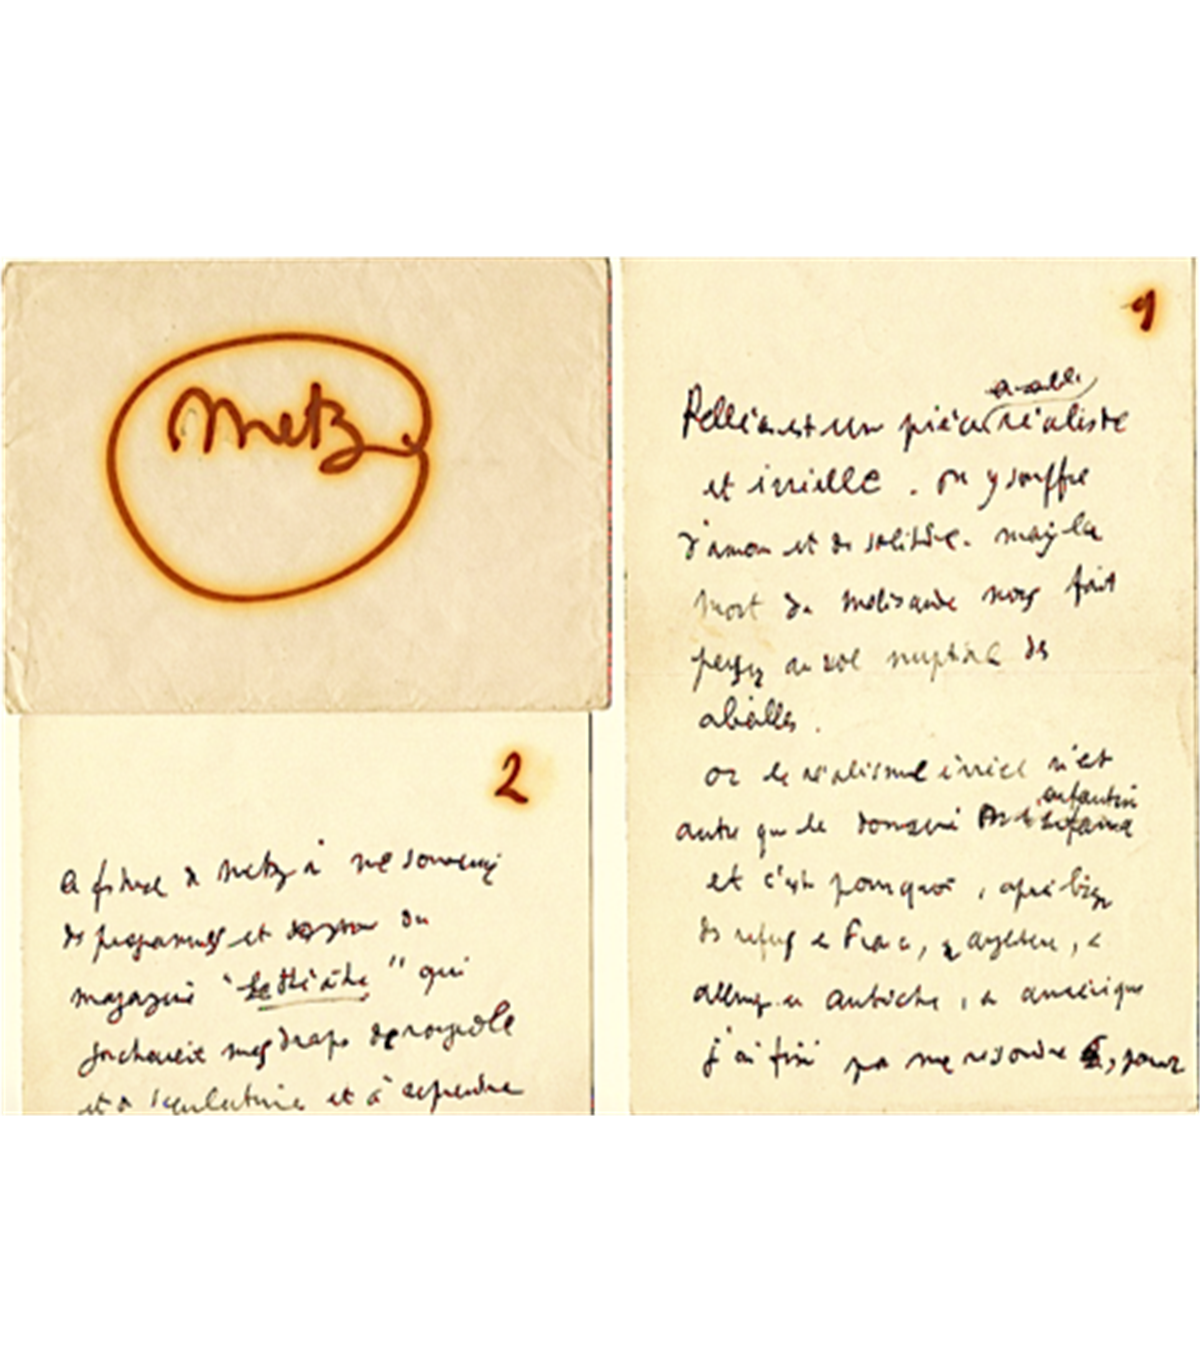 Metz
1
Pelléas est une pièce réaliste
et irréelle. On y souffre
d'amour et de solitude. mais la
mort de Mélisande nous fait
penser au vol nuptial des
abeilles.
or le réalisme irréel n'est
enfantin
autre que le domaine
et c'est pourquoi, après bien
des refus en France, en angleterre, en
allemagne en autriche, en amérique
j'ai fini par me résoudre, pour
2
le festival de Metz à me souvenir
des personnages et du
magazine "Le théâtre" qui
jonchaient mes draps de rougeole
et de scarlatine et à